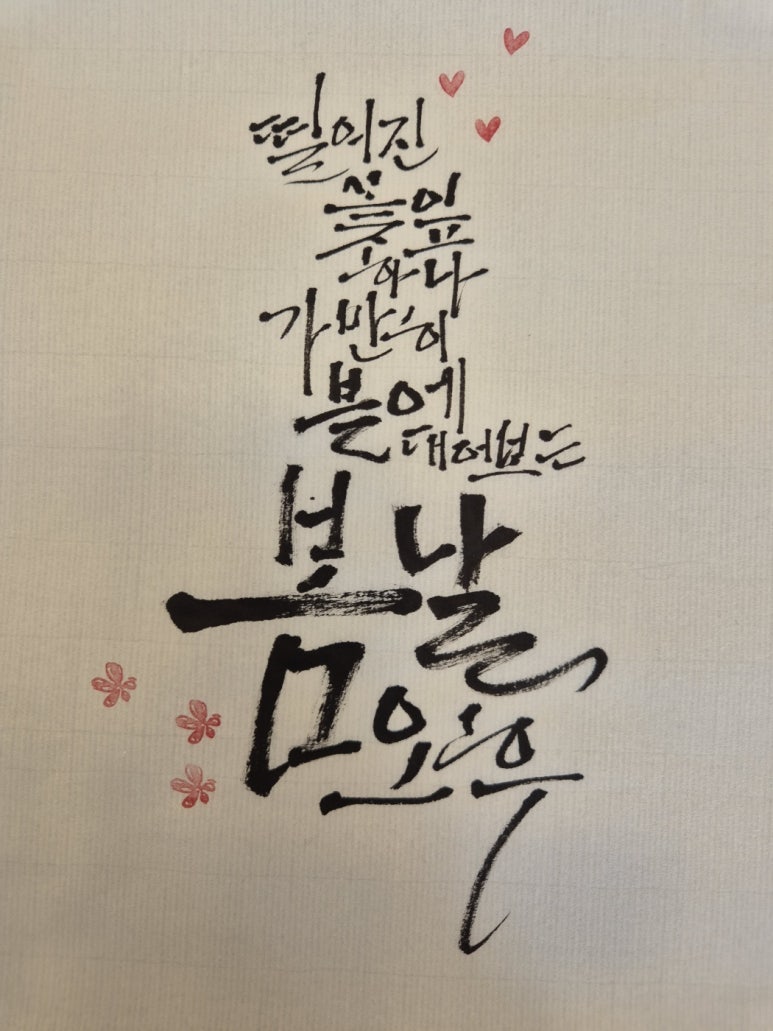 떨어진
꽃잎
하나
가만히
볼에
대어보는
봄날
오후